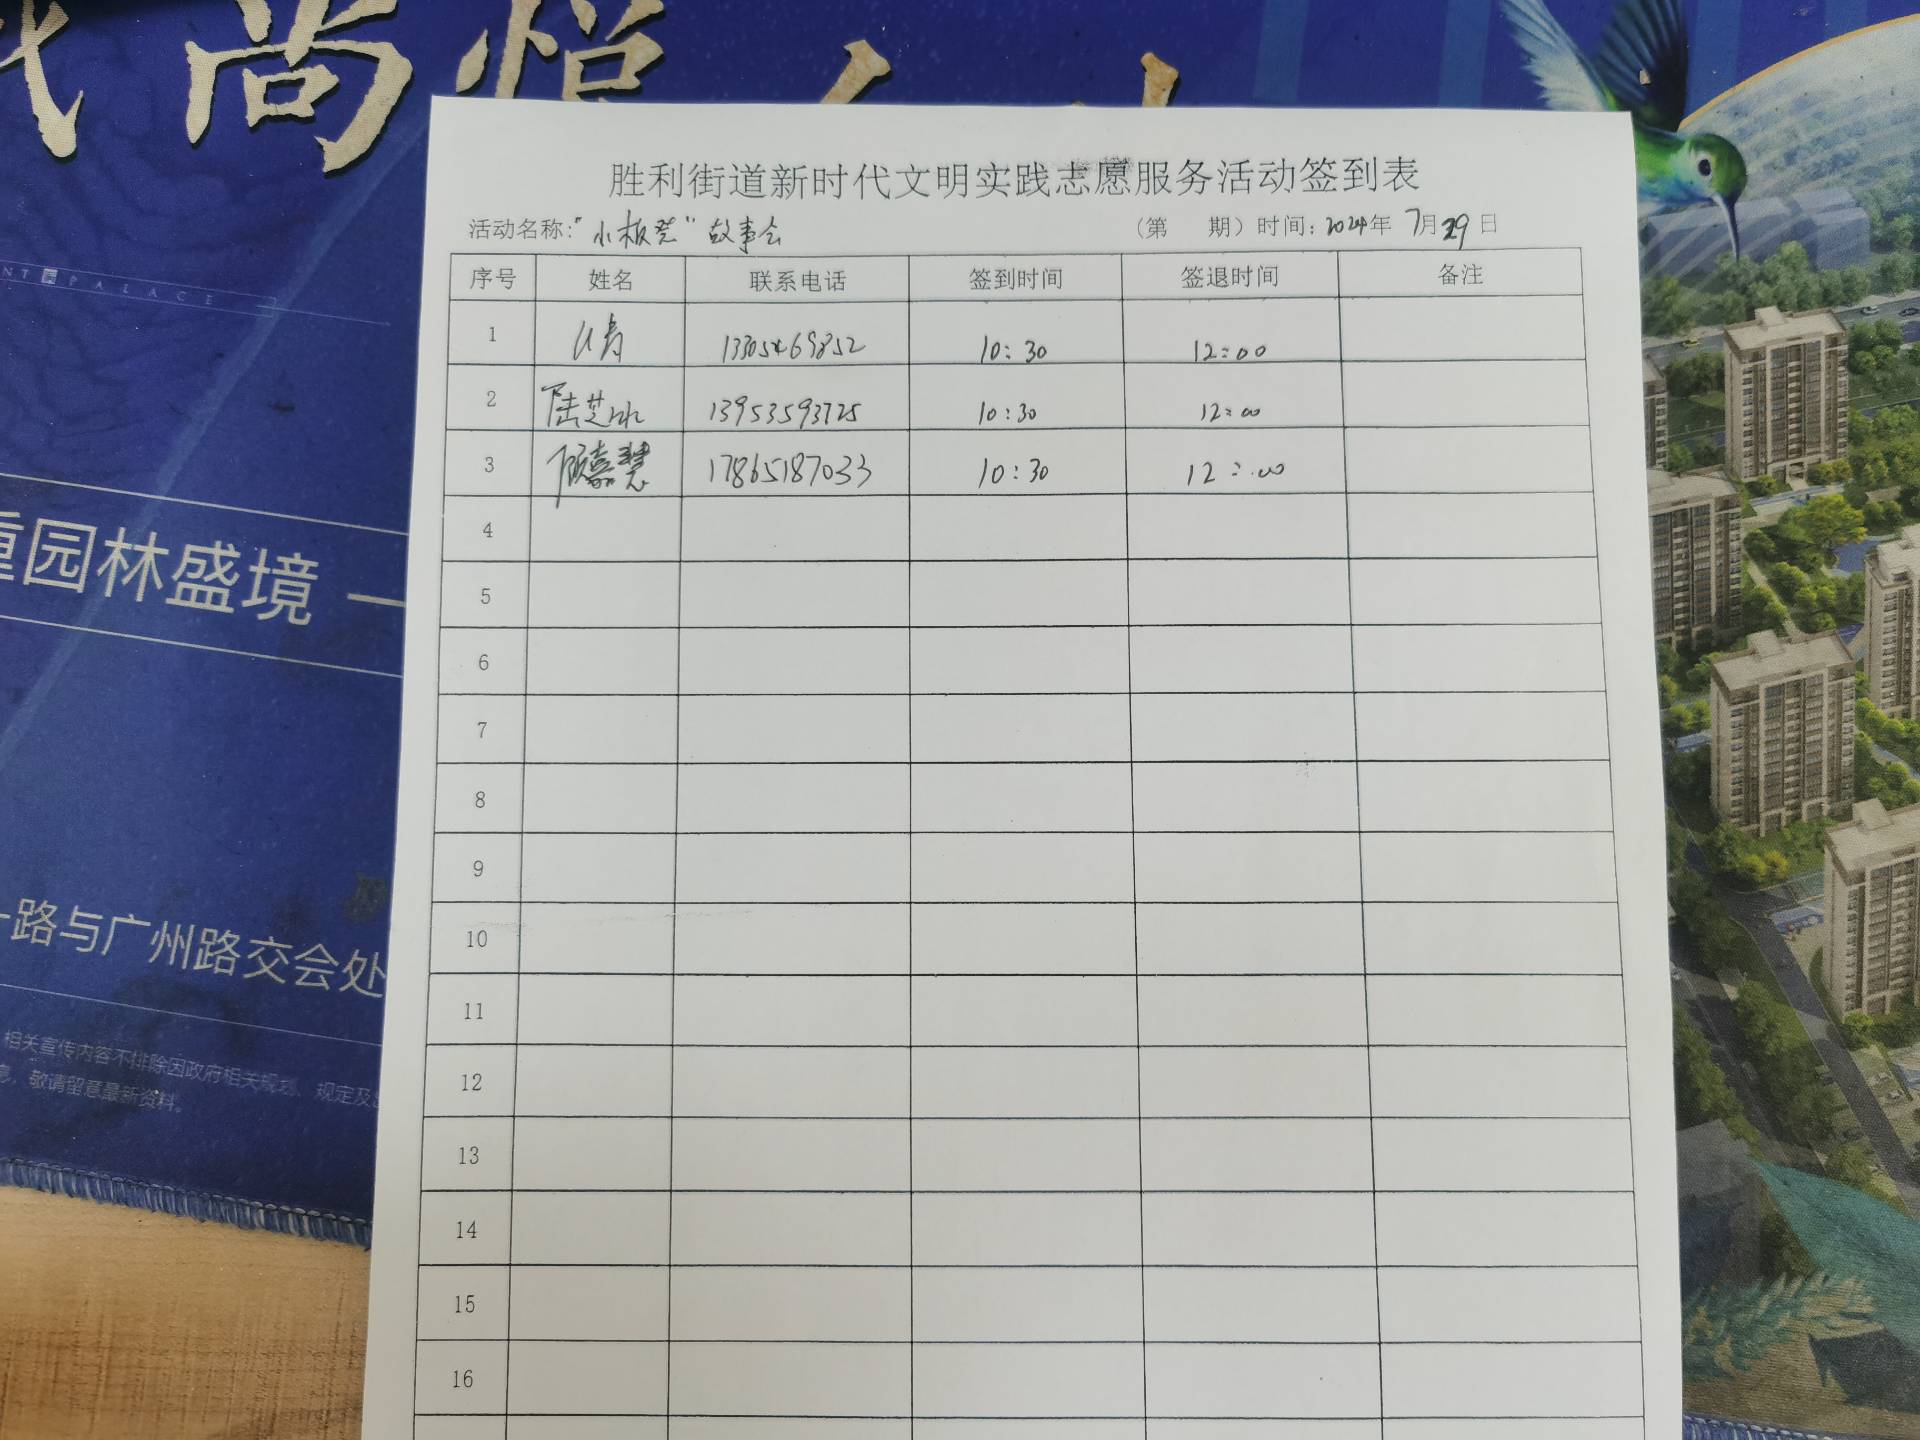 尚悦
NT PALACE
重园林盛境 一
一路与广州路交会处
相关宣传内容不排除因政府相关规划、规定及
敬请留意最新资料。
胜利街道新时代文明实践志愿服务活动签到表
活动名称:"小板凳"故事会 (第 期) 时间:2024年 7月29日
序号 姓名 联系电话 签到时间 签退时间 备注
1 13305469852 10:30 12:00
2 陆芝冰 13953593725 10:30 12:00
3 顾嘉慧 17865187033 10:30 12:00
4
5
6
7
8
9
10
11
12
13
14
15
16